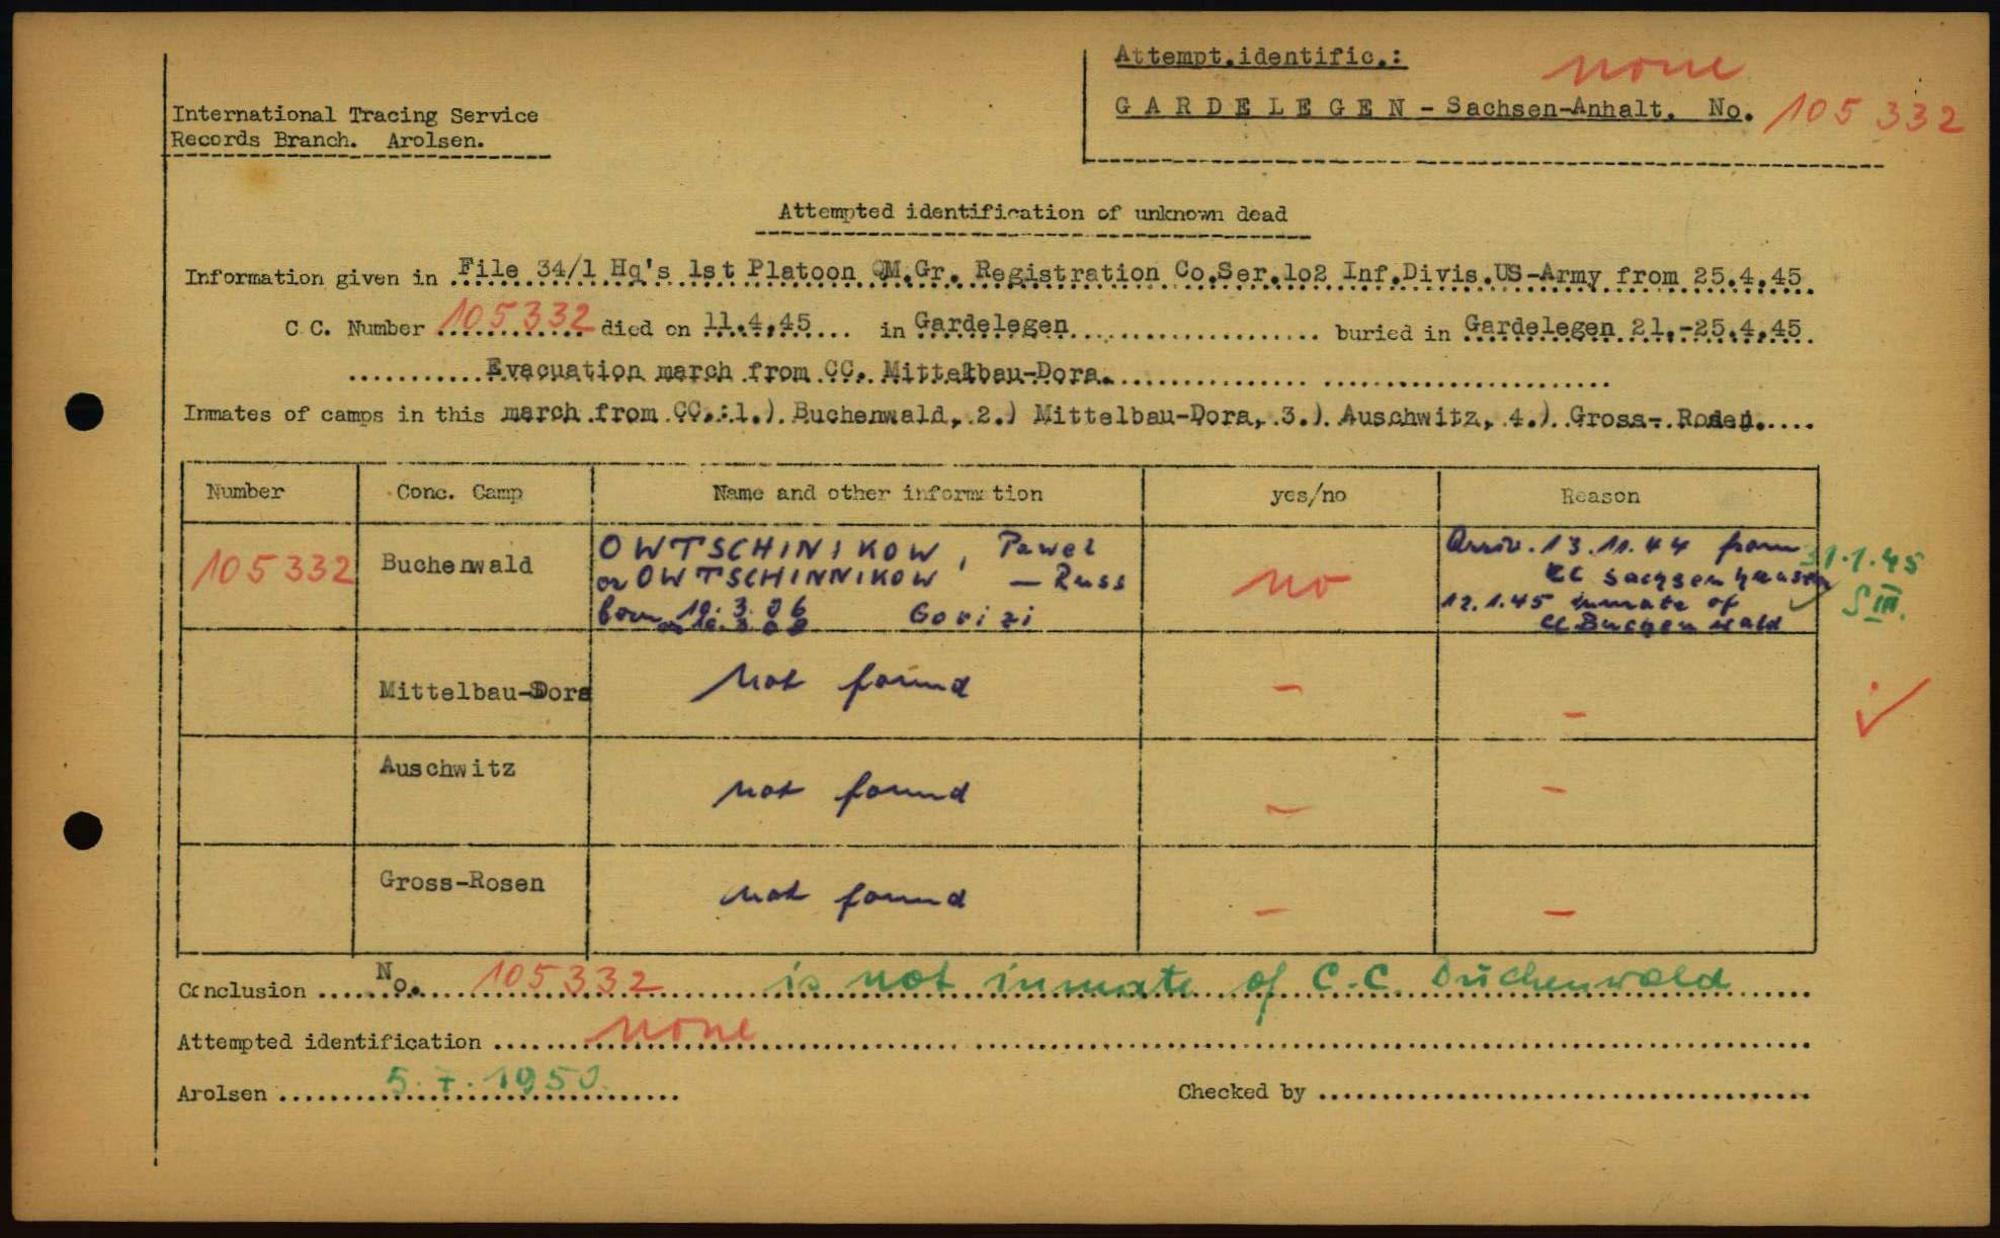 Attempt.identific.: none
International Tracing Service
Records Branch. Arolsen.
GARDELEGEN - Sachsen-Anhalt. No. 105 332
Attempted identification of unknown dead
Information given in File 34/1 Hq's 1st Platoon QM.Gr. Registration Co.Ser.1o2 Inf.Divis.US-Army from 25.4.45
C C. Number 105332 died on 11.4.45 in Gardelegen buried in Gardelegen 21.-25.4.45
Evacuation march from CC. Mittelbau-Dora.
Inmates of camps in this march from CC.:1.) Buchenwald, 2.) Mittelbau-Dora, 3.) Auschwitz, 4.) Gross-Rosen.
Number Conc. Camp Name and other information yes/no Reason
105332 Buchenwald OWTSCHINIKOW, Pawel
or OWTSCHINNIKOW - Russ
born 10. 3. 06 Gorizi
no
Arriv. 13.11.44 from
CC Sachsenhausen
12.1.45 inmate of
CC Buchenwald
31.1.45
S III.
Mittelbau-Dora not found - -
Auschwitz not found - -
Gross-Rosen not found - -
Conclusion No. 105332 is not inmate of C.C Buchenwald
Attempted identification none
Arolsen 5.7.1950.
Checked by